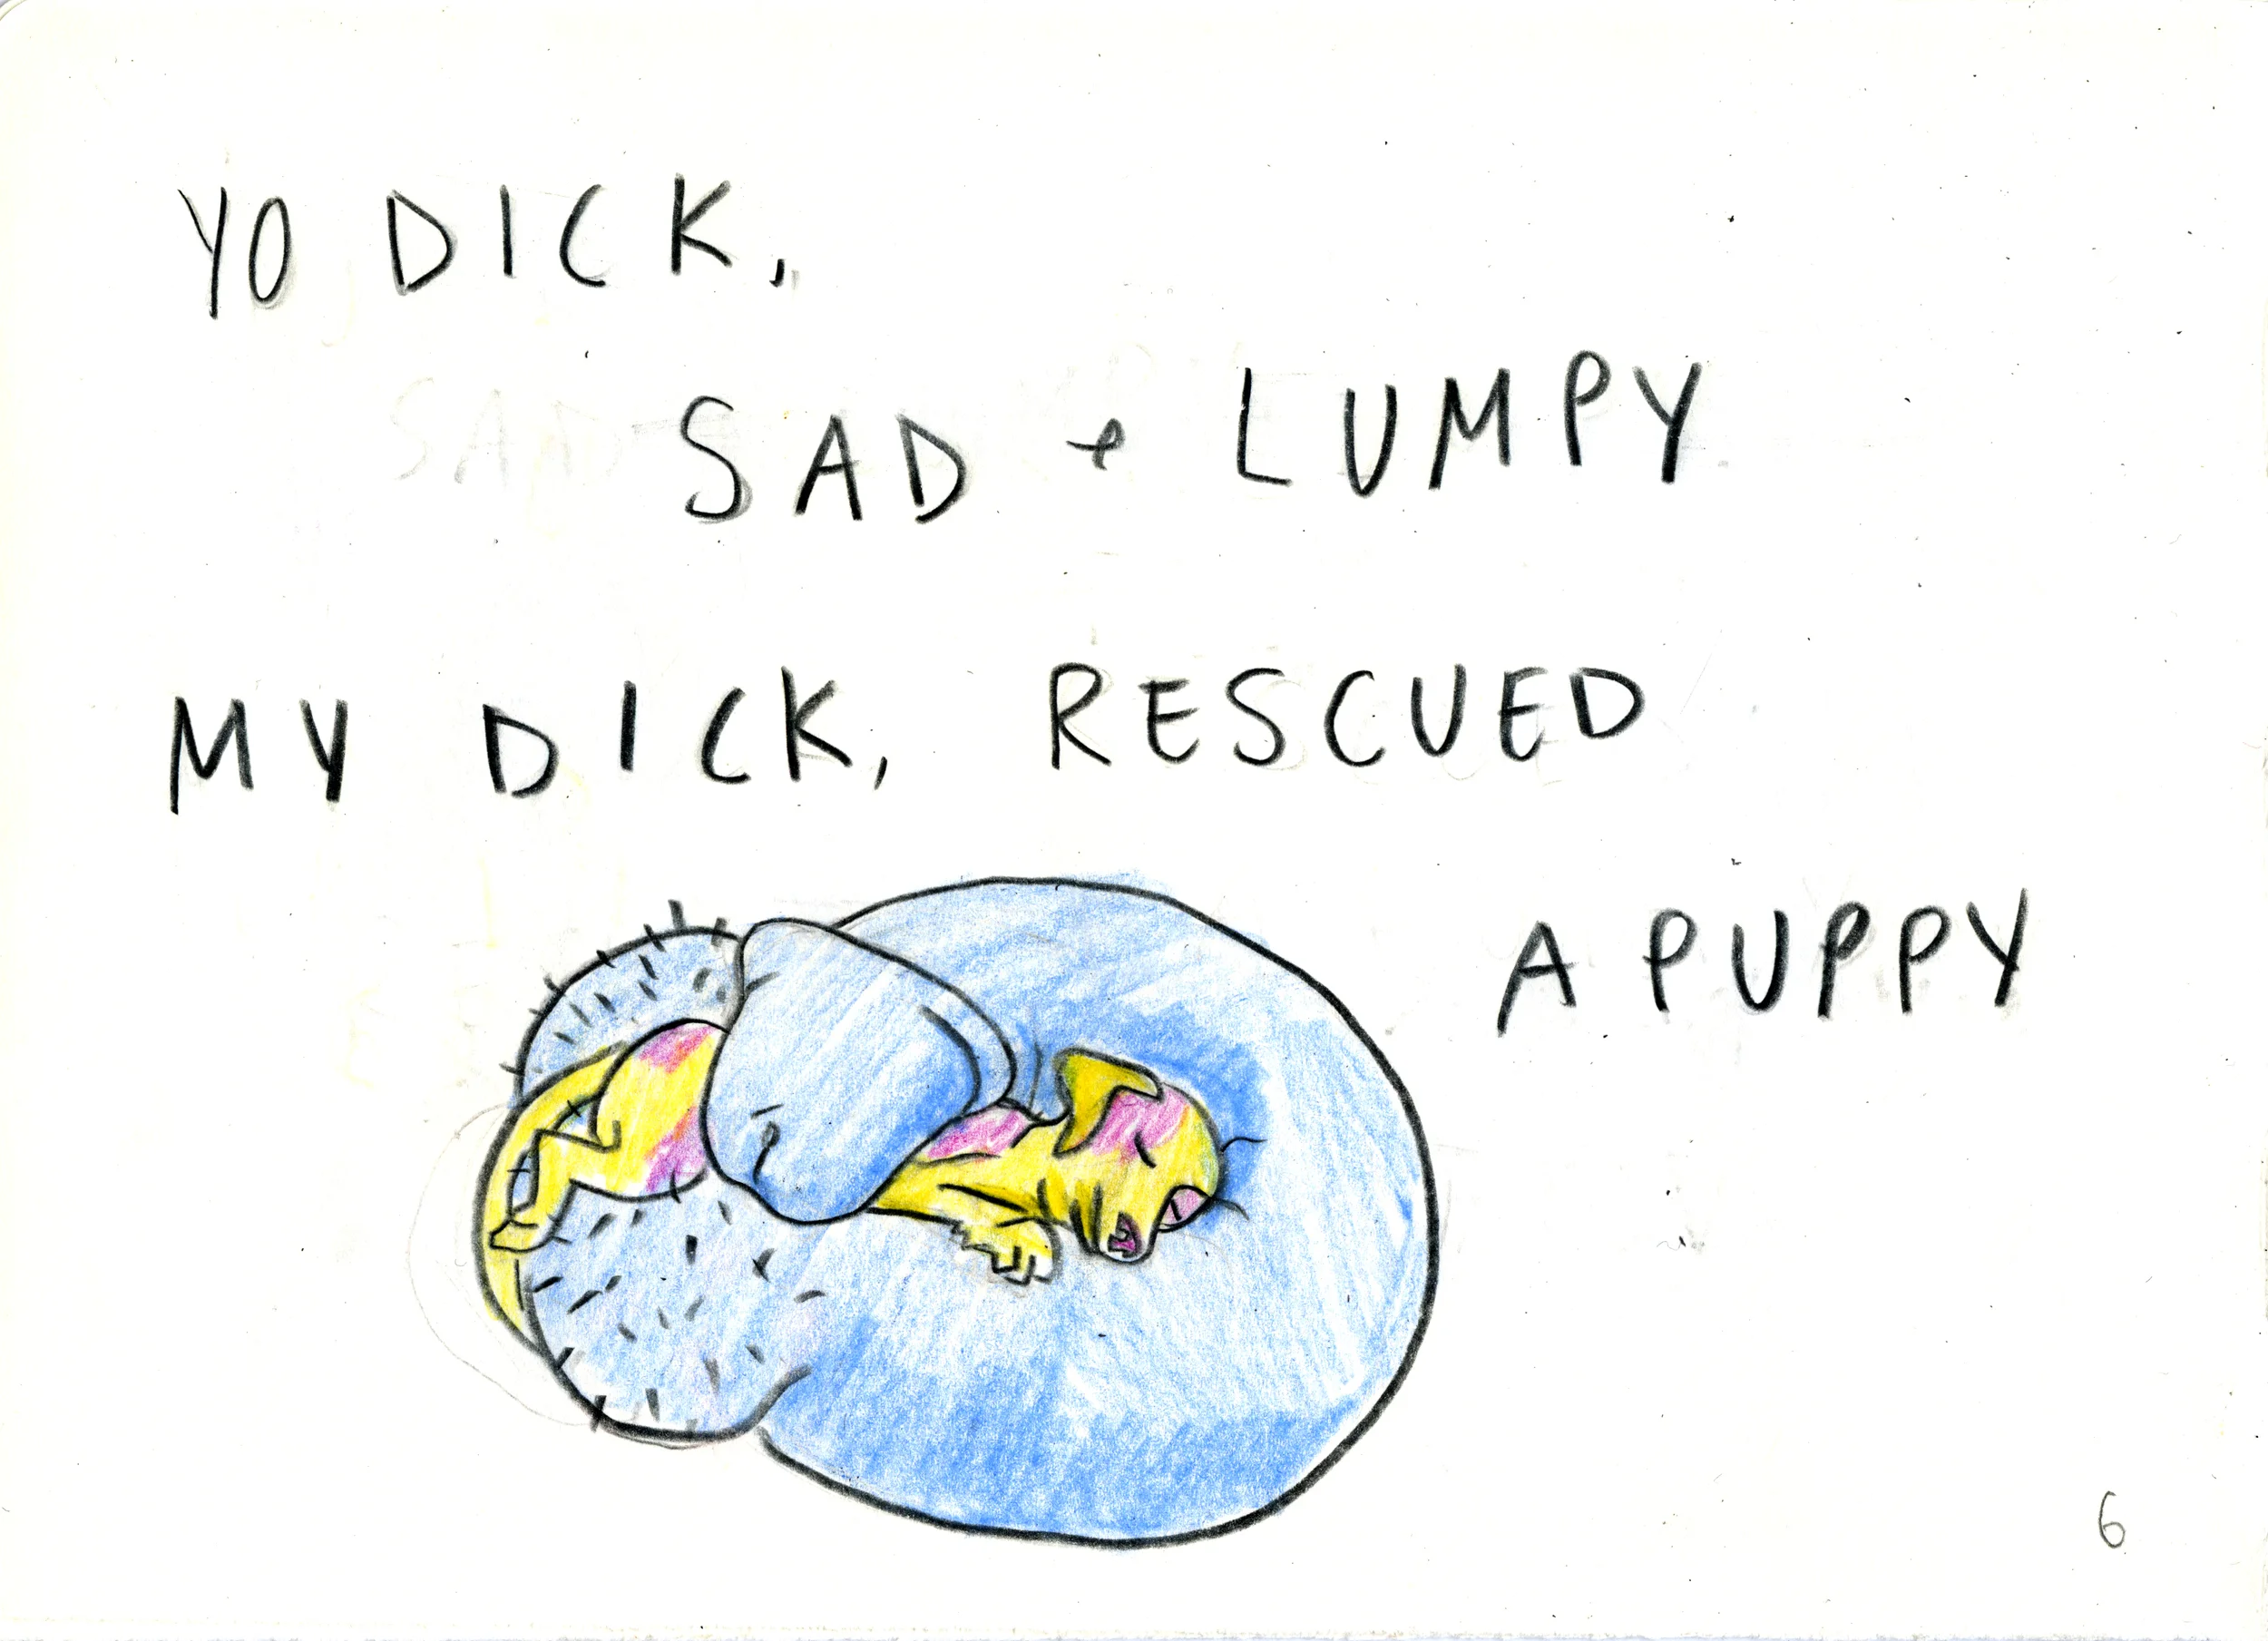 YO DICK,
SAD + LUMPY
MY DICK, RESCUED
A PUPPY
6